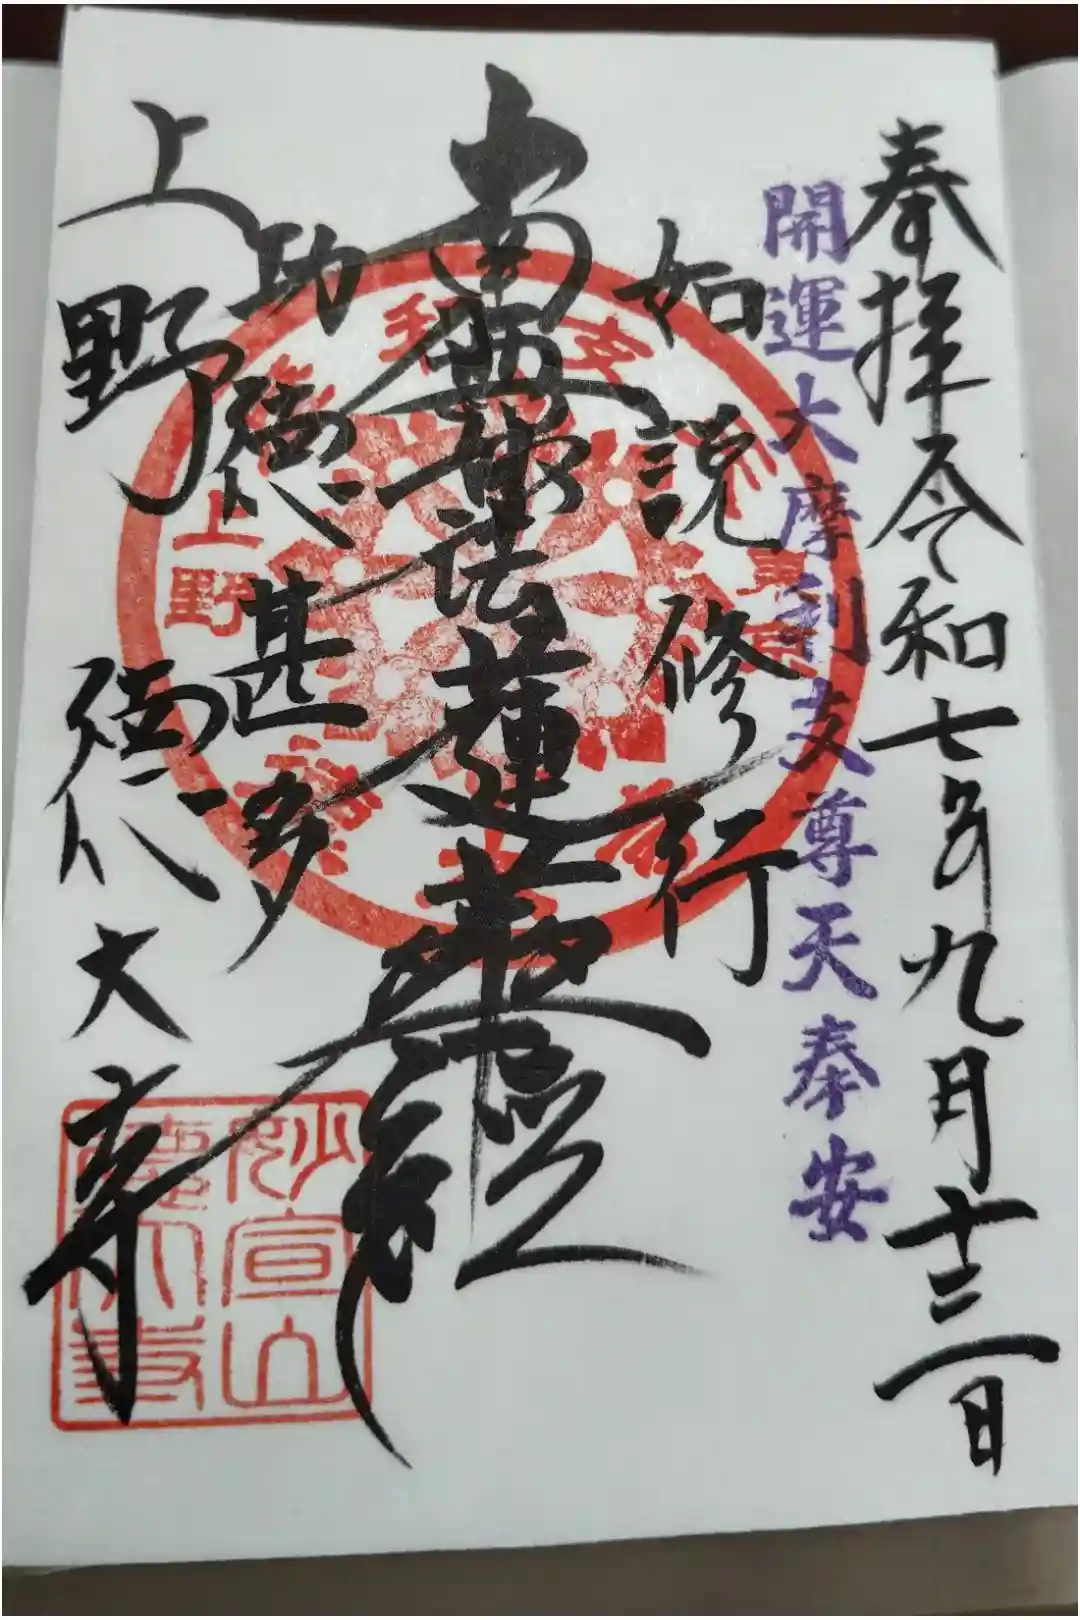 奉拝 令和七年九月十三日
開運大摩利支尊天奉安
如説修行
南無妙法蓮華経
功徳甚多
上野 徳大寺
東京
上野
妙宣山
徳大寺